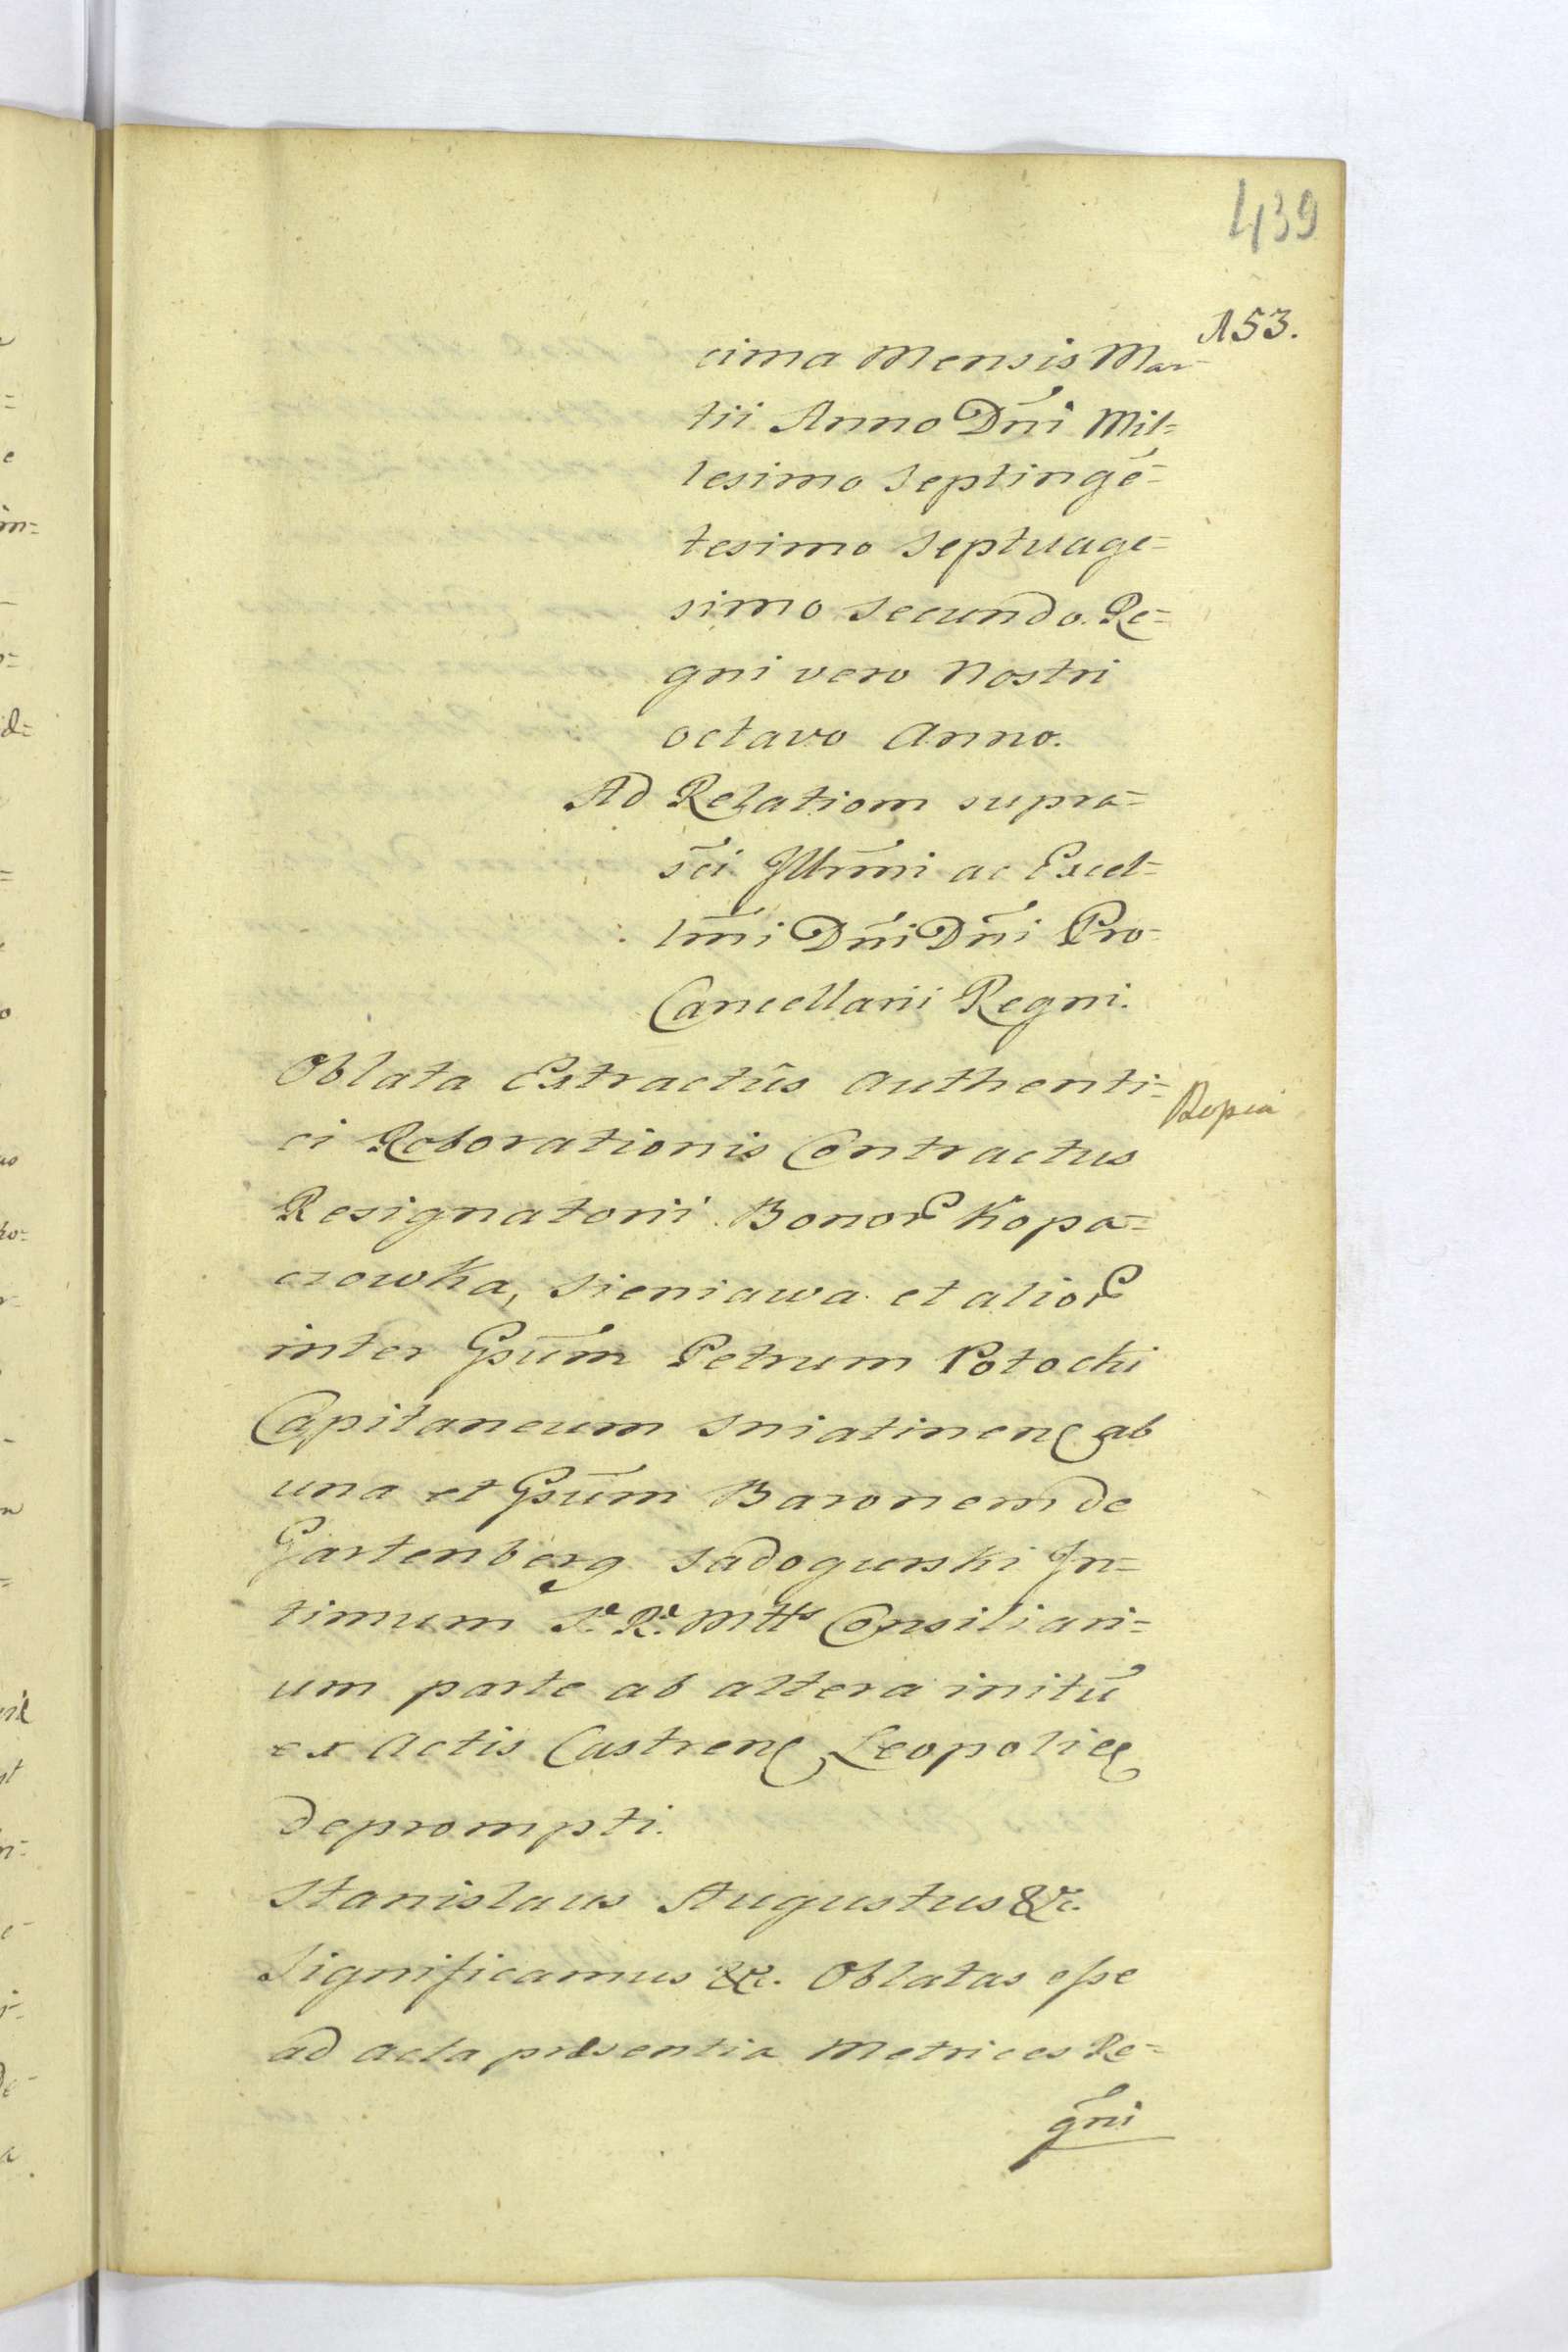 439
153.
cima Mensis Mar-
tii Anno Dñi Mil=
lesimo Septingē=
tesimo Septuage=
simo Secundo. Re=
gni vero Nostri
octavo Anno.
Ad Relationem supra=
sc̄i Jllr̄mi ac Excel=
lm̄i Dñi Dñi Pro-
Cancellarii Regni.
Oblata Extractûs Authenti=
ci Roborationis Contractus
Resignatorii Bonor Kopa=
czowka, Sieniawa et alior
inter Gsūm Petrum Potocki
Capitaneum Sniatinen ab
una et Gsūm Baronem de
Gartenberg Sadogurski In=
timum S. R. Mttis Consiliari=
um parte ab altera initū
ex Actis Castren Leopolien
deprompti.
Stanislaus Augustus &c.
Significamus &c. Oblatas esse
ad acta præsentia Metrices Re=
gñi